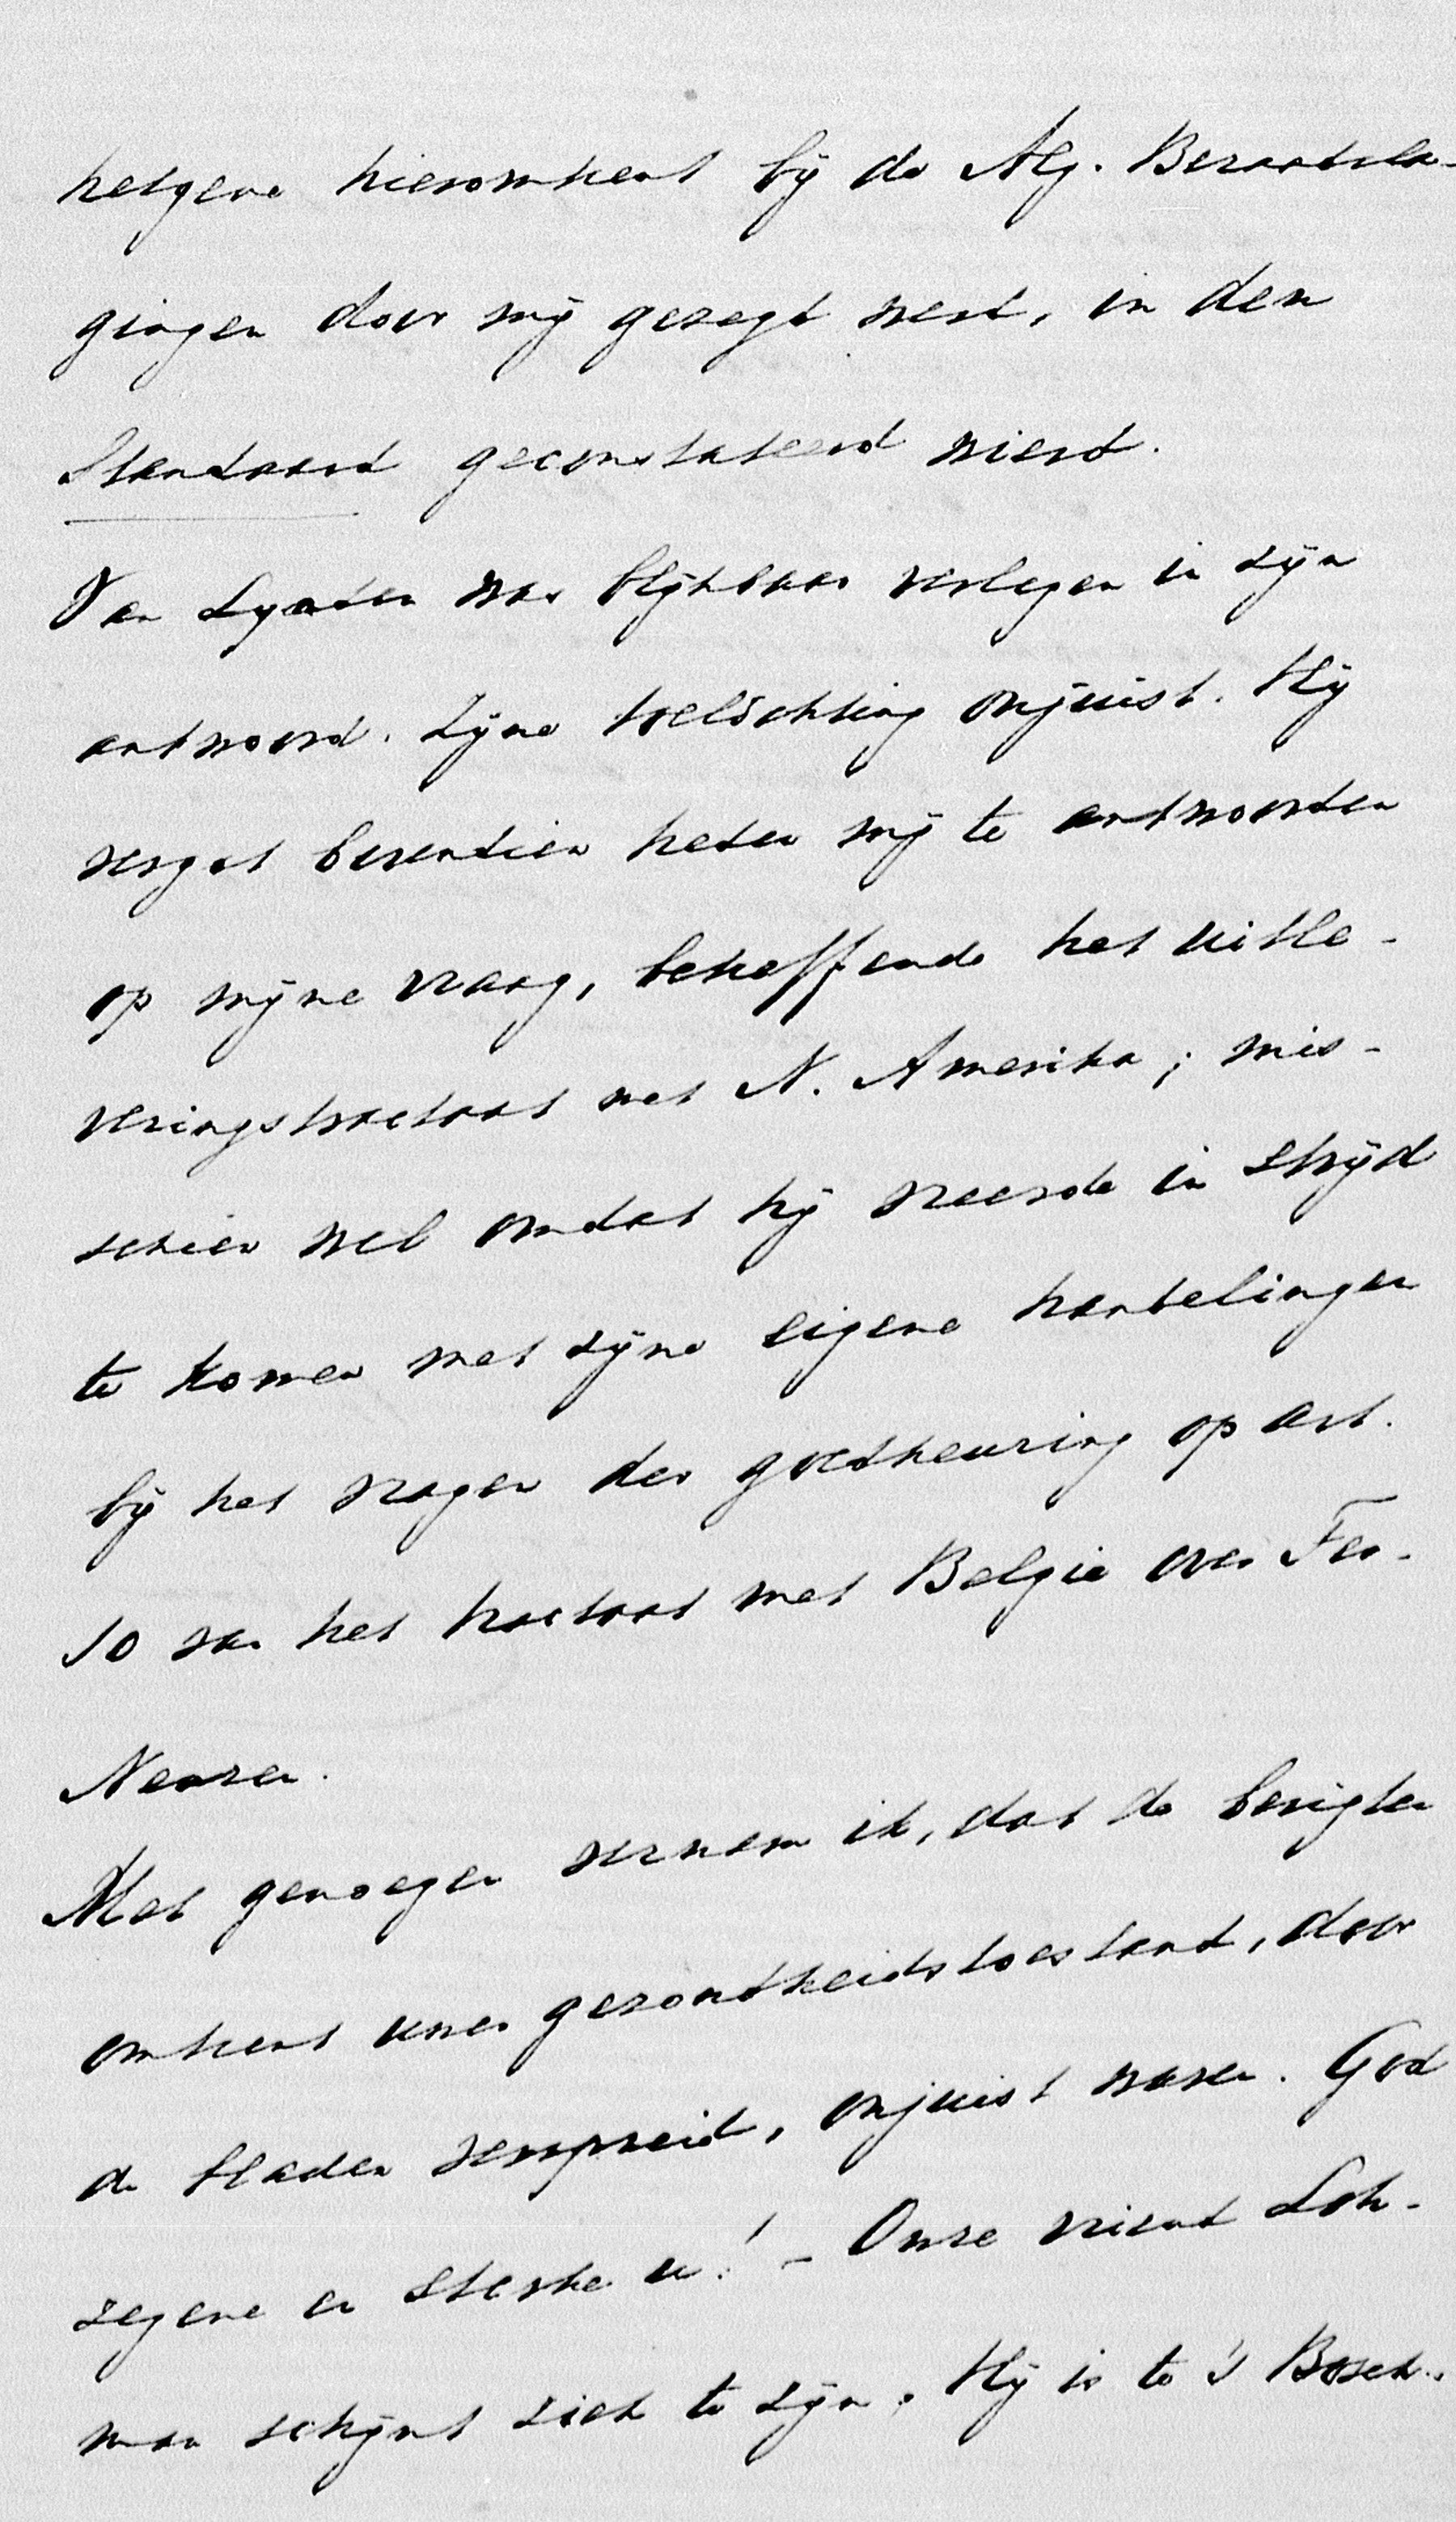 hetgene hieromtrent bij de Alg. Beraadsla-
gingen door mij gezegd werd, in den
Standaard geconstateerd wierd.
Van Lynden was blijkbaar verlegen in zijn
antwoord. Zijne toelichting onjuist. Hij
vergat bovendien heden mij te antwoorden
op mijne vraag, betreffende het uitle-
veringstractaat met N. Amerika; mis-
schien wel omdat hij vreesde in strijd
te komen met zijne eigene handelingen
bij het vragen der goedkeuring op art.
10 van het tractaat met Belgie over Ter-
Neuzen.
Met genoegen vernam ik, dat de berigten
omtrent uwen gezondheidstoestand, door
de bladen verspreid, onjuist waren. God
zegene en sterke u! – Onze vriend Loh-
man schijnt ziek te zijn. Hij is te 's Bosch.